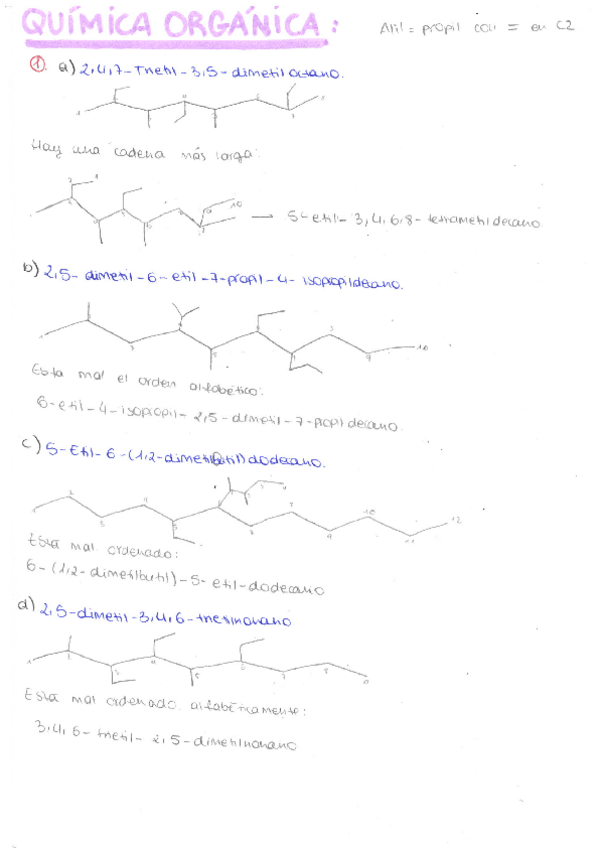 QUÍMICA ORGÁNICA:
Alil = propil con = en C2
1. a) 2,4,7-Trietil-3,5-dimetil octano.
Hay una cadena más larga:
5-etil-3,4,6,8-tetrametildecano
b) 2,5-dimetil-6-etil-7-propil-4-isopropildecano.
Esta mal el orden alfabético:
6-etil-4-isopropil-2,5-dimetil-7-propil decano.
c) 5-Etil-6-(1,2-dimetilbutil)dodecano.
Está mal ordenado:
6-(1,2-dimetilbutil)-5-etil-dodecano
d) 2,5-dimetil-3,4,6-trietilnonano
Está mal ordenado alfabéticamente:
3,4,6-trietil-2,5-dimetilnonano